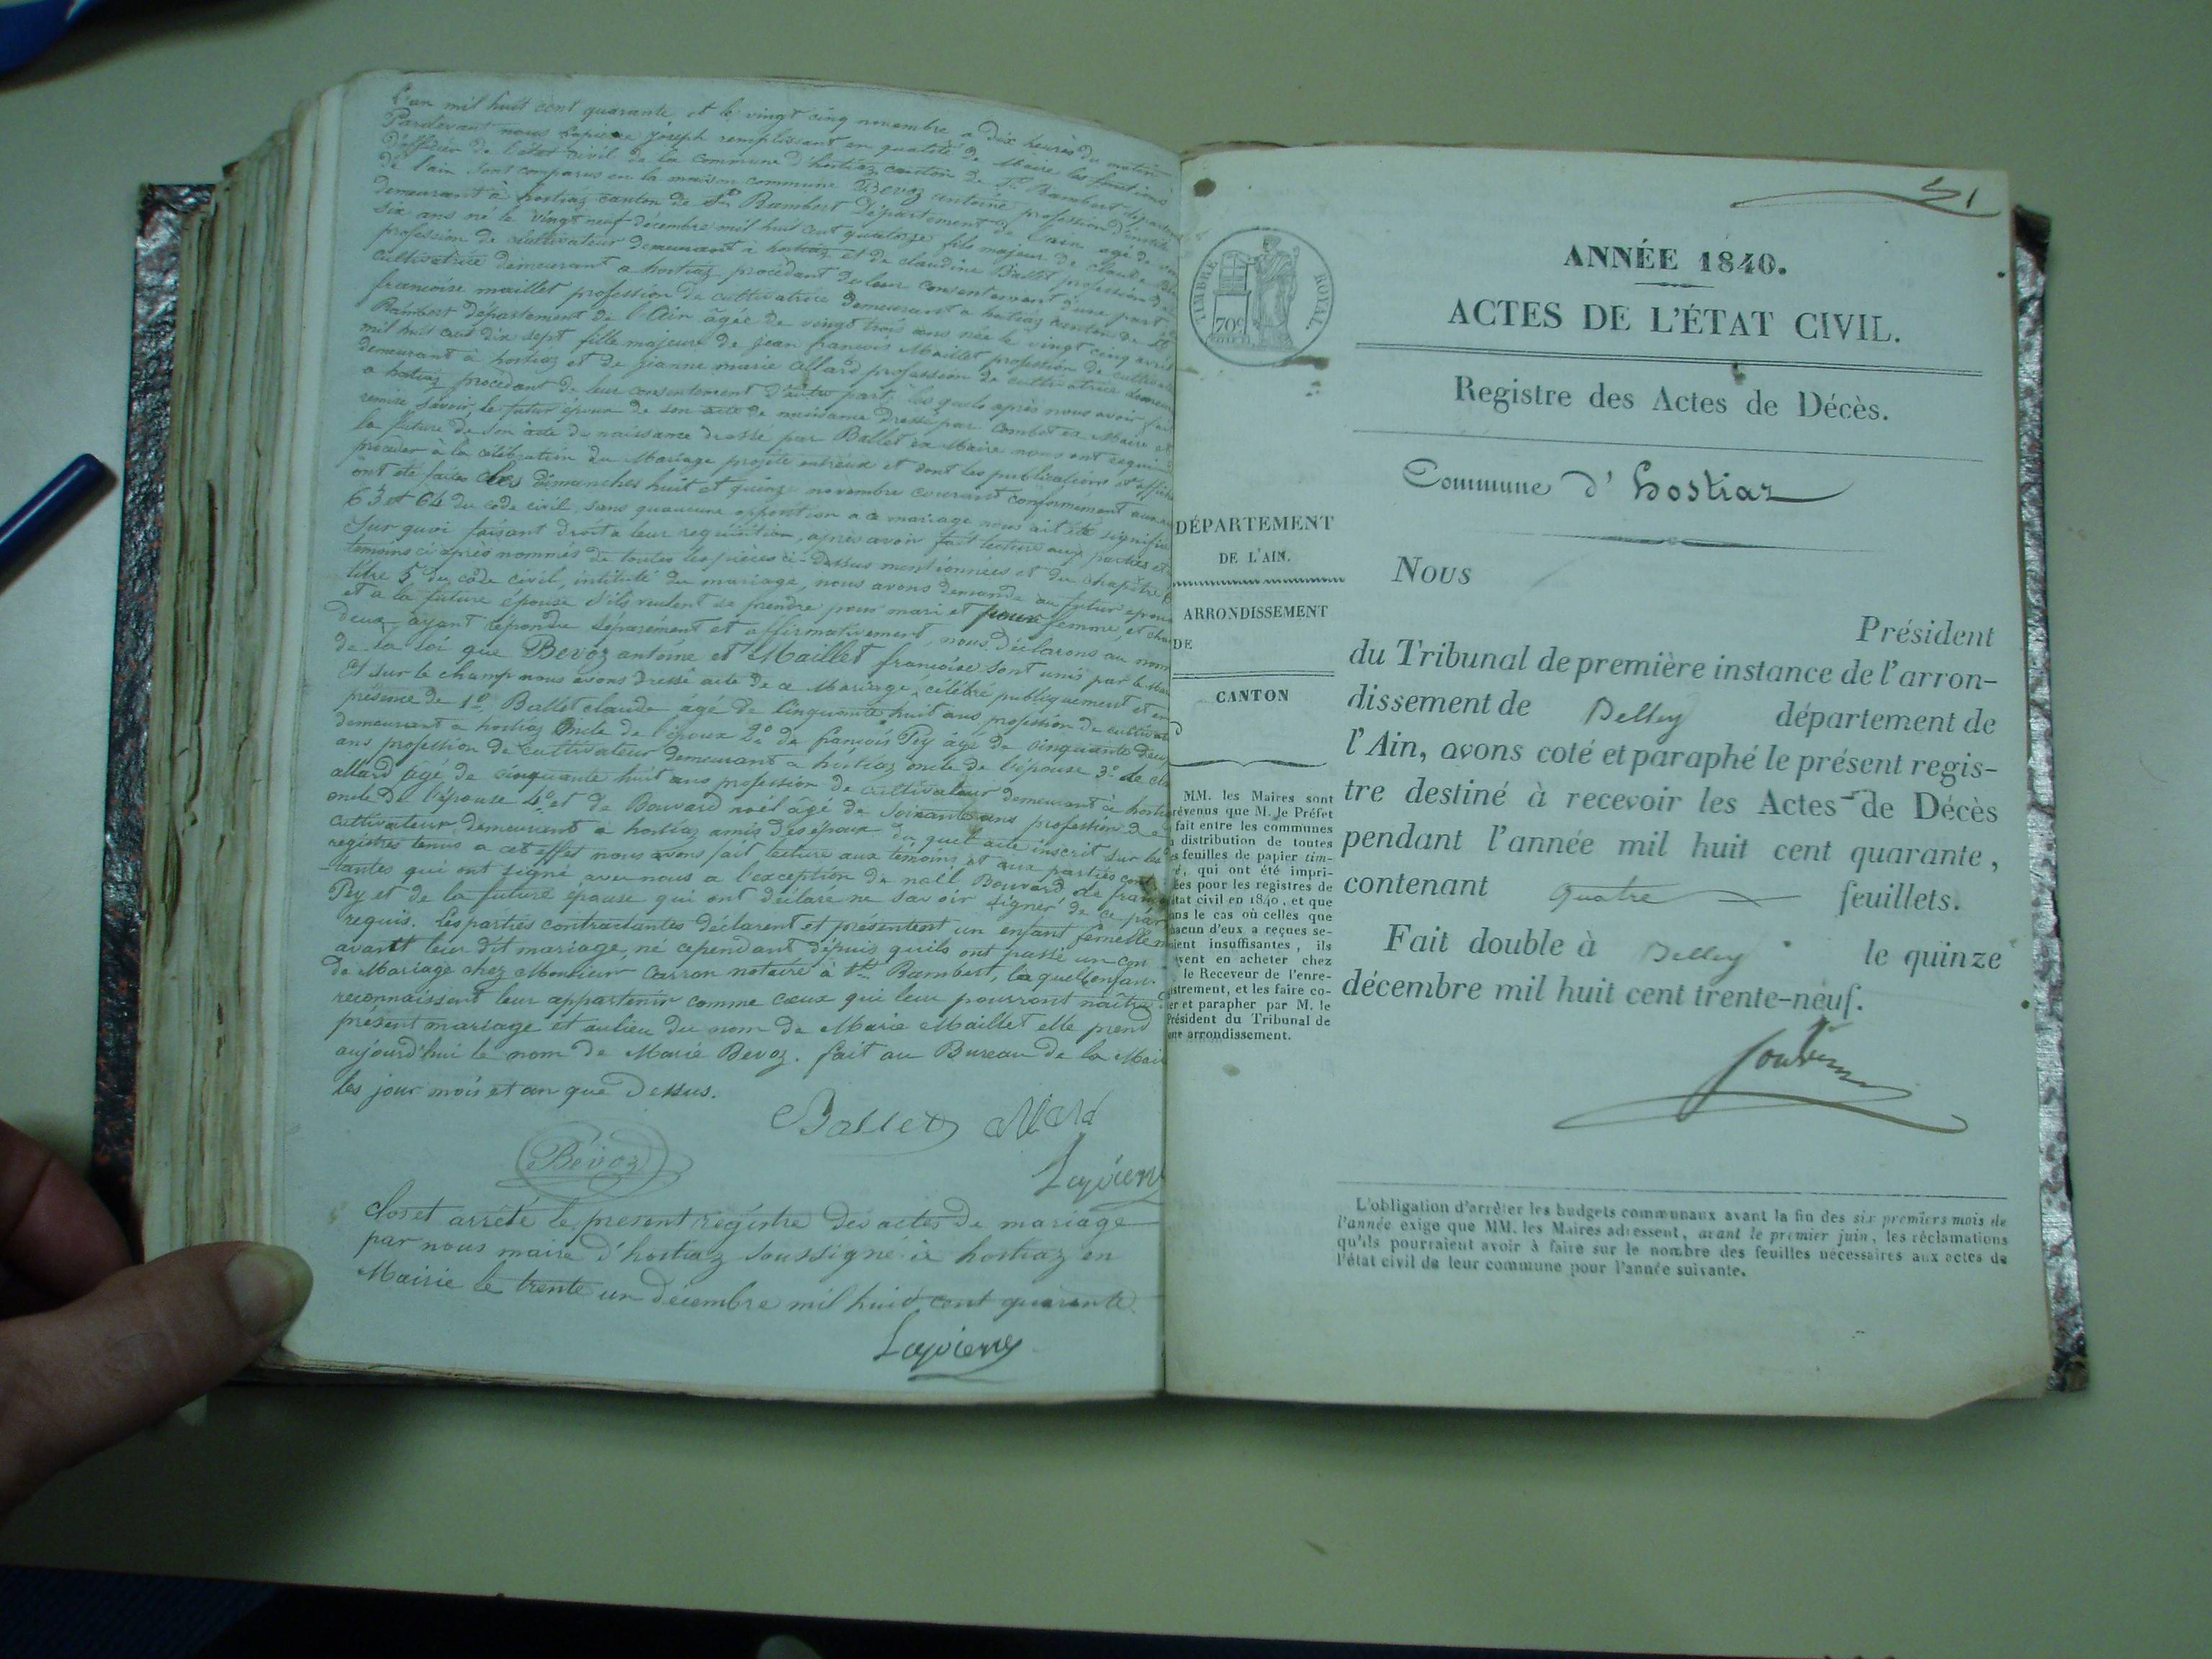 L'an mil huit cent quarante et le vingt cinq novembre a dix heures du matin
Pardevant nous Lapierre Joseph remplissant en qualité de Maire les fonctions
d'officier de l'état civil de la commune d'hostiaz canton de St Rambert département
de l'ain sont comparus en la maison commune Bevoz antoine profession d'instit
demeurant à hostiaz canton de St Rambert Département de l'ain agé de vin
six ans né le vingt neuf décembre mil huit cent quatorze fils majeur de claude Bev
profession de cultivateur demeurant à hostiaz et de claudine Ballet profession de
cultivatrice demeurant a hostiaz procédant de leur consentement d'une part et
francoise maillet profession de cultivatrice demeurant a hostiaz canton de St
Rambert département de l'Ain âgée de vingt trois ans née le vingt cinq avril
mil huit cent dix sept fille majeure de jean francois Maillet profession de cultivat
demeurant à hostiaz et de jeanne marie allard profession de cultivatrice demeur
a hostiaz procédant de leur consentement d'autre part; les quels après nous avoir fait
remise savoir, le futur époux de son acte de naissance dressé par Combet ex Maire et
la future de son acte de naissance dressé par Ballet ex Maire nous ont requis de
procéder à la célébration du Mariage projeté entreeux et dont les publications et affich
ont été faites les dimanches huit et quinze novembre courant conformément aux
63 et 64 du code civil, sans quaucune opposition a ce mariage nous ait été signifiée
Sur quoi faisant droit a leur requisition, après avoir fait lecture aux parties et
temoins ci après nommés de toutes les pièces ci-dessus mentionnées et du chapitre 6
titre 5 du code civil, intitulé du mariage, nous avons demandé au futur époux
et a la future épouse s'ils veulent se prendre pour mari et pour femme, et chac
deux ayant répondu séparément et affirmativement, nous déclarons au nom
de la loi que Bevoz antoine et Maillet francoise sont unis par le Mari
Et sur le champ nous avons dressé acte de ce Mariage, célébré publiquement et en
présence de 1º Ballet claude âgé de Cinquante huit ans profession de cultivat
demeurant a hostiaz oncle de l'époux 2º de francois Pey âgé de cinquante deux
ans profession de cultivateur demeurant a hostiaz oncle de l'épouse 3º de cla
allard âgé de cinquante huit ans profession de cultivateur demeurant à hostia
oncle de l'épouse 4º et de Bouvard noël âgé de Soixante ans profession de
cultivateur, demeurant a hostiaz amis des époux du quel acte inscrit sur les
registres tenus a cet effet nous avons fait lecture aux témoins et aux parties cont
-tantes qui ont signé avec nous a l'exception de noël Bouvard de francoi
Pey et de la future épouse qui ont déclaré ne savoir signer de ce par
requis. les parties contractantes déclarent et présentent un enfant femelle n
avant leur dit mariage, né cependant depuis quils ont passé un con
de Mariage chez Monsieur Carron notaire à St Rambert, laquelle enfan
reconnaissent leur appartenir comme ceux qui leur pourront naître
présent mariage et aulieu du nom de Marie Maillet elle prend
aujourd'hui le nom de Marie Bevoz. fait au Bureau de la Mair
les jour mois et an que dessus.
Ballet Allard
Bévoz
Lapierre
Clos et arrêté le present registre des actes de mariage
par nous maire d'hostiaz soussigné à hostiaz en
Mairie le trente un décembre mil huit cent quarante.
Lapierre
51
TIMBRE ROYAL
70c
ANNÉE 1840.
ACTES DE L'ÉTAT CIVIL.
Registre des Actes de Décès.
Commune d'hostiaz
DÉPARTEMENT
DE L'AIN.
ARRONDISSEMENT
DE
CANTON
MM. les Maires sont
révenus que M. le Préfet
fait entre les communes
a distribution de toutes
es feuilles de papier tim-
é, qui ont été impri-
ées pour les registres de
état civil en 1840, et que
ans le cas où celles que
hacun d'eux a reçues se-
aient insuffisantes, ils
vent en acheter chez
le Receveur de l'enre-
istrement, et les faire co-
er et parapher par M. le
Président du Tribunal de
ur arrondissement.
Nous
Président
du Tribunal de première instance de l'arron-
dissement de Belley département de
l'Ain, avons coté et paraphé le présent regis-
tre destiné à recevoir les Actes de Décès
pendant l'année mil huit cent quarante,
contenant quatre feuillets.
Fait double à Belley le quinze
décembre mil huit cent trente-neuf.
L'obligation d'arrêter les budgets communaux avant la fin des six premiers mois de
l'année exige que MM. les Maires adressent, avant le premier juin, les réclamations
qu'ils pourraient avoir à faire sur le nombre des feuilles nécessaires aux actes de
l'état civil de leur commune pour l'année suivante.